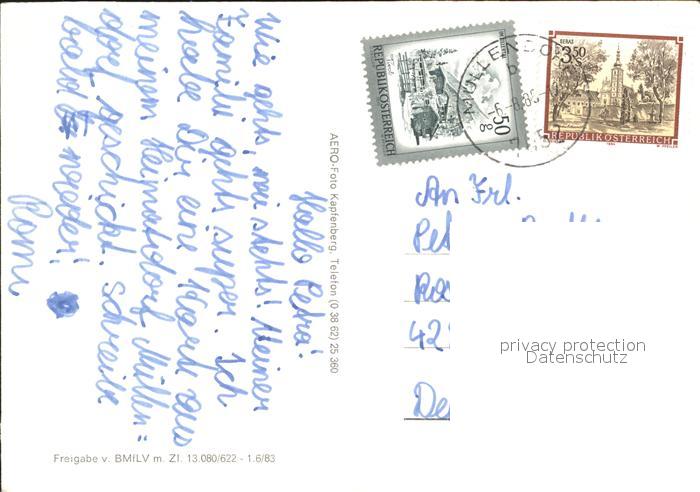 Hallo Petra!
Wie gehts, wie stehts! Meiner
Familie gehts super. Ich
habe Dir eine Karte aus
meinem Heimatdorf Müllen=
dorf geschickt. Schreibe
bald wieder!
Romi
AERO-Foto Kapfenberg, Telefon (0 38 62) 25 360
Freigabe v. BMfLV m. Zl. 13.080/622 - 1.6/83
REPUBLIK ÖSTERREICH
50
BERAT
3.50
REPUBLIK ÖSTERREICH
MÜLLENDORF
An Frl.
Pet
42
De
privacy protection
Datenschutz